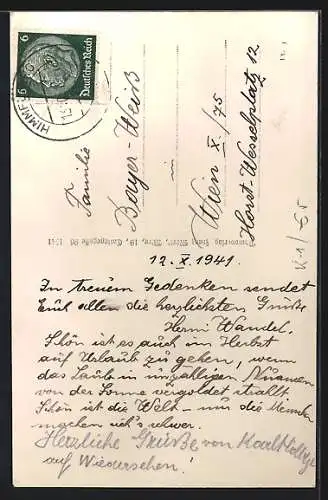 6
6
Deutsches Reich
HIMME
Familie
Bayer-Weiß
in
Wien X./75
Horst-Wesselplatz 12
12. X. 1941.
In treuem Gedenken sendet
Euch allen die herzlichsten Grüße
Hermi Wandel.
Schön ist es auch im Herbst
auf Urlaub zu gehen, wenn
das Laub in unzähligen Nuancen
von der Sonne vergoldet strahlt
Schön ist die Welt – nur die Menschen
machen sich's schwer.
Herzliche Grüße von Karl
auf Wiedersehen!